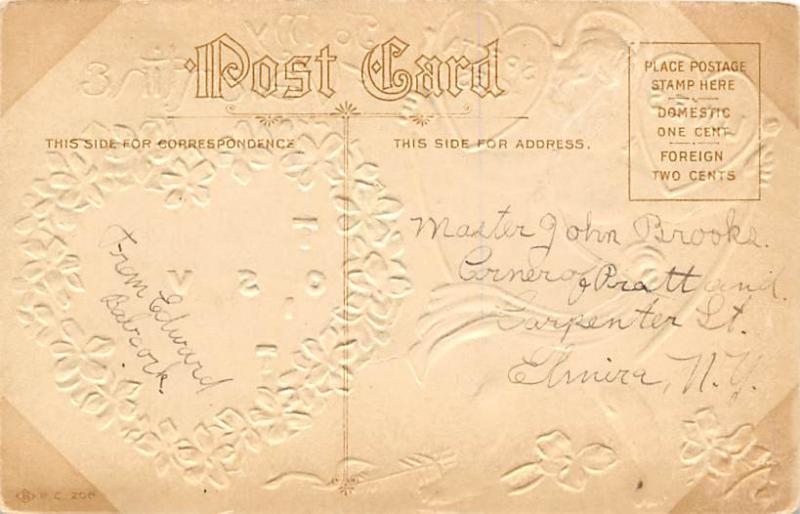 Post Card
PLACE POSTAGE
STAMP HERE
DOMESTIC
ONE CENT
FOREIGN
TWO CENTS
THIS SIDE FOR CORRESPONDENCE
THIS SIDE FOR ADDRESS.
From Edward
Babcock.
Master John Brooks.
Corner of Pratt and
Carpenter St.
Elmira, N.Y.
P.C. 208